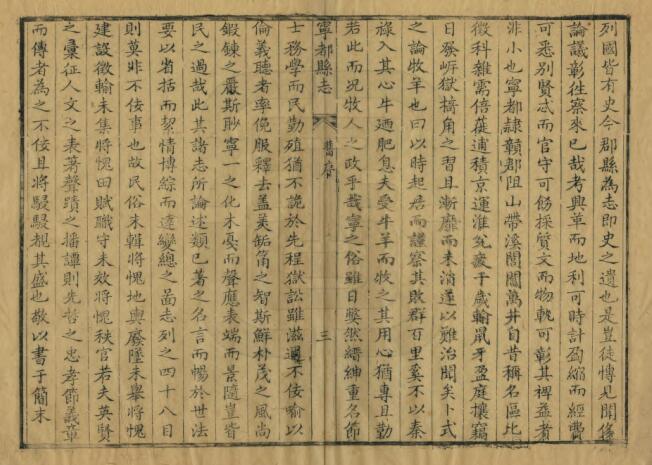 列國皆有史今郡縣為志即史之遺也是豈徒慱見聞侈
論議彰徃察來已哉考興革而地利可時計盈縮而經費
可悉別賢忒而官守可飭採質文而物軌可彰其裨益者
非小也寧都隷贛郡阻山帶溪閭閻萬井自昔稱名區比
徵科雜需倍蓰逋積京運淮兊疲于歲輸鼠牙盈庭攘竊
日發岍獄掎角之習且漸靡而来消遂以難治聞矣卜式
之論牧羊也曰以時起居而謹察其敗群百里奚不以秦
祿入其心牛迺肥息夫受牛羊而牧之其用心猶專且勤
若此而况牧人之政乎哉寧之俗雖日澆然縉紳重名節
寧都縣志 舊序 三
士務學而民勤殖猶不詭於先程獄訟雖滋過不佞喻以
倫義聽者率俛服釋去盖美鉐筩之智斯鮮朴茂之風尚
鍜鍊之嚴斯眇寧一之化木戞而聲應表端而景隨豈皆
民之過哉此其諸志所論述類已著之名言而暢於世法
要以省括而絜情博綜而達變總之啚志列之四十八目
則莫非不佞事也故民俗未輯將愧地輿廢墜未舉將愧
建設徵輸未集將愧田賦職守未效將愧秩官若夫英賢
之彙征人文之表著聲蹟之播譁則先哲之忠孝節義章
而傳者為之不佞且將駸駸覩其盛也敬以書于簡末